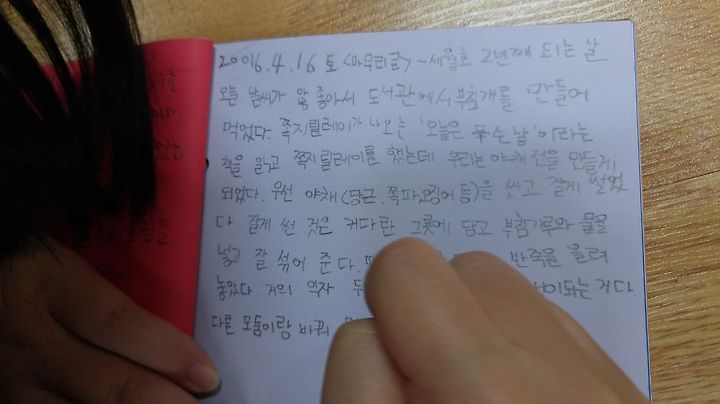 2016.4.16 토 <마무리글> - 세월호 2년째 되는 날
오늘 날씨가 안 좋아서 도서관에서 부침개를 만들어
먹었다. 쪽지릴레이가 나오는 '오늘은 무슨 날'이라는
책을 읽구 쪽지릴레이를 했는데 우리는 야채전을 만들게
되었다. 우선 야채(당근, 쪽파, 오징어 등)을 씻고 잘게 썰었
다. 잘게 썬 것은 커다란 그릇에 담고 부침가루와 물을
넣고 잘 섞어 준다. 반죽을 올려
놓았다. 거의 익자 되는 거다.
다른 모둠이랑 바꿔